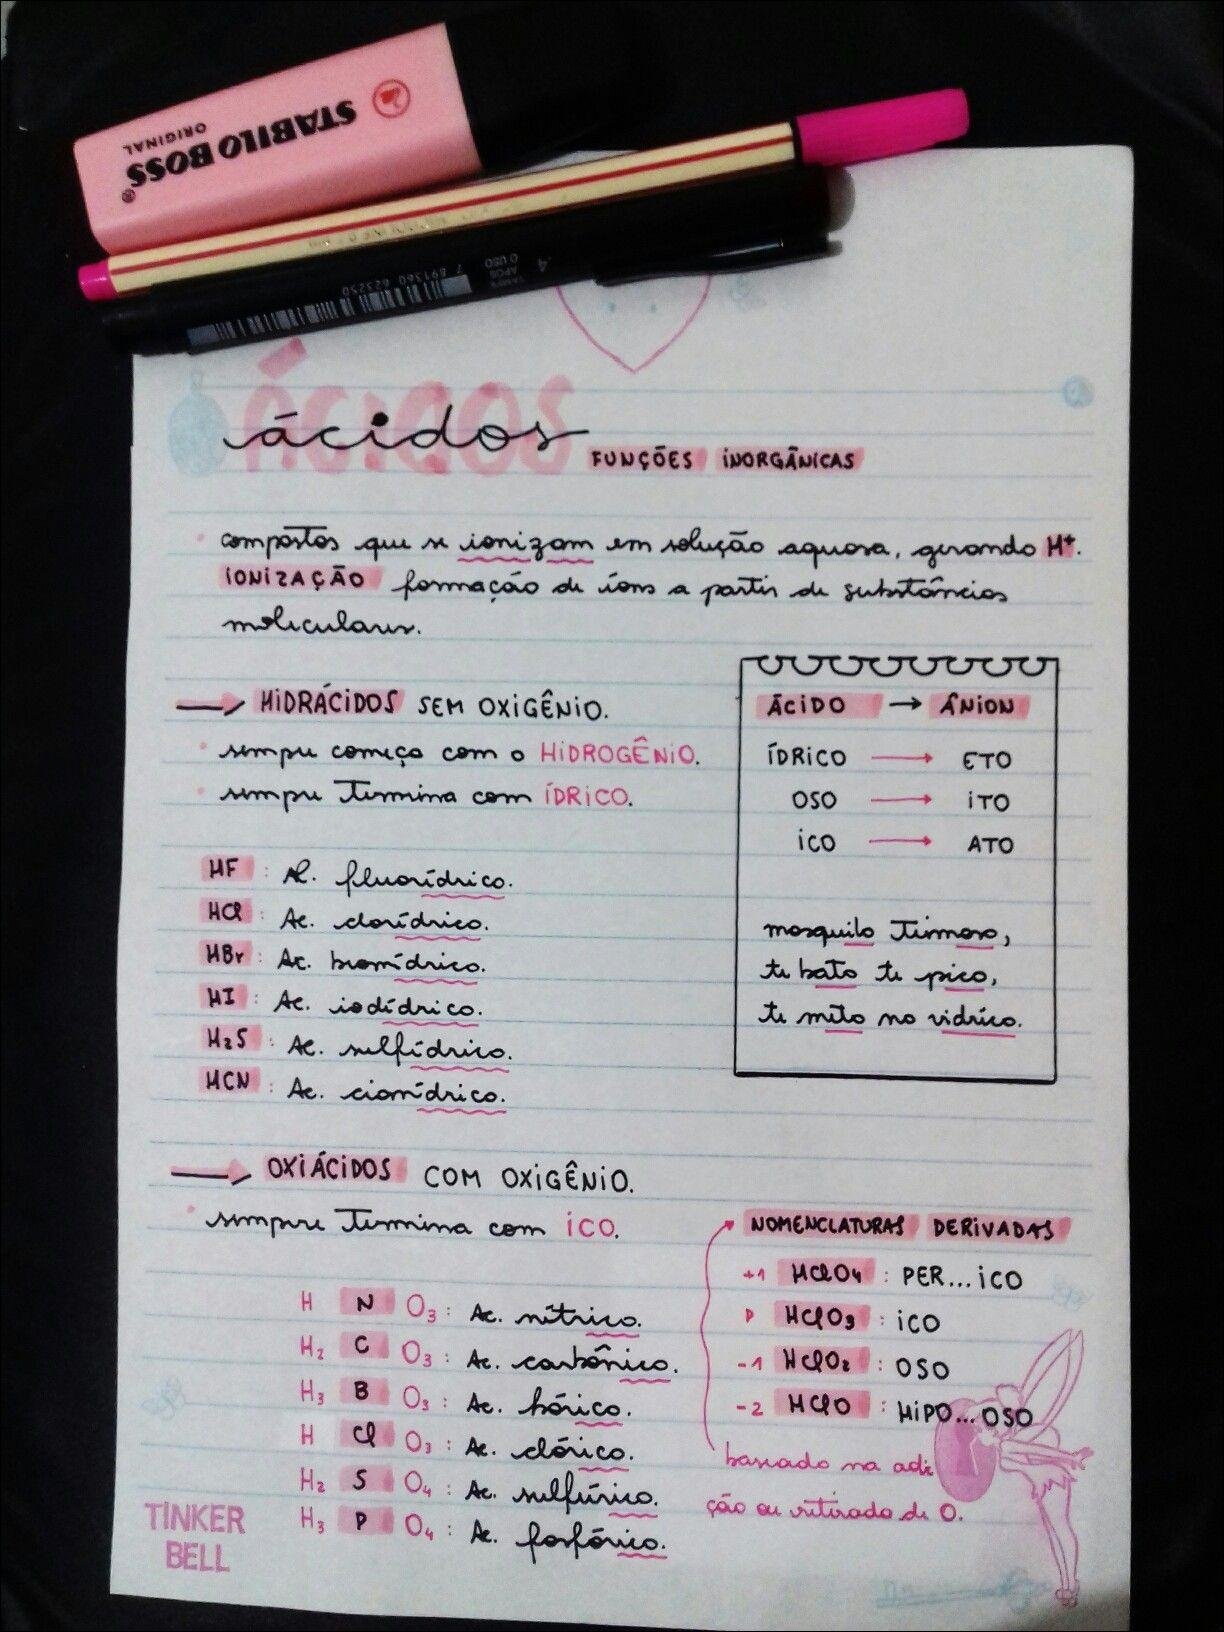 STABILO BOSS
ORIGINAL
7 891360 623250
TAMPE
APÓS
O USO
ÁCIDOS
ácidos FUNÇÕES INORGÂNICAS
• compostos que se ionizam em solução aquosa, gerando H+.
IONIZAÇÃO formação de íons a partir de substâncias
moleculares.
→ HIDRÁCIDOS SEM OXIGÊNIO.
• sempre começa com o HIDROGÊNIO.
• sempre termina com ÍDRICO.
HF : Ac. fluorídrico.
HCl : Ac. clorídrico.
HBr : Ac. bromídrico.
HI : Ac. iodídrico.
H2S : Ac. sulfídrico.
HCN : Ac. cianídrico.
ÁCIDO → ÂNION
ÍDRICO → ETO
OSO → ITO
ICO → ATO
mosquito teimoso,
te bato te pico,
te meto no vidrico.
→ OXIÁCIDOS COM OXIGÊNIO.
• sempre termina com ICO.
H N O3 : Ac. nítrico.
H2 C O3 : Ac. carbônico.
H3 B O3 : Ac. bórico.
H Cl O3 : Ac. clórico.
H2 S O4 : Ac. sulfúrico.
H3 P O4 : Ac. fosfórico.
NOMENCLATURAS DERIVADAS
+1 HClO4 : PER...ICO
P HClO3 : ICO
-1 HClO2 : OSO
-2 HClO : HIPO...OSO
baseado na adi
ção ou retirada de O.
TINKER
BELL